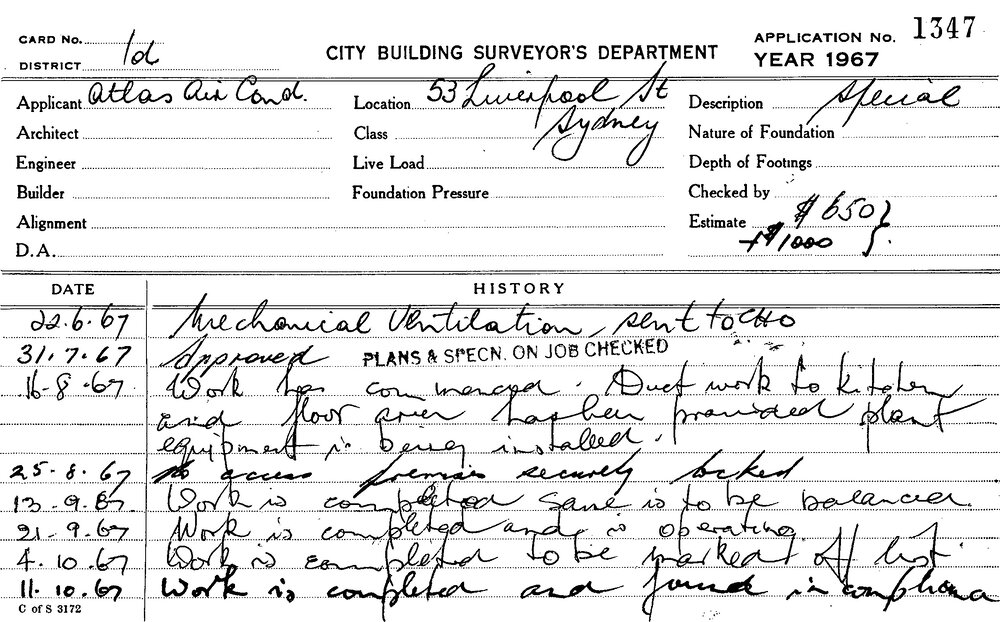 CARD No. 1d
DISTRICT
CITY BUILDING SURVEYOR'S DEPARTMENT
APPLICATION No. 1347
YEAR 1967
Applicant Atlas Air Cond. Location 53 Liverpool St Sydney Description Special
Architect Class Nature of Foundation
Engineer Live Load Depth of Footings
Builder Foundation Pressure Checked by
Alignment Estimate $650 }
D.A. +$1000 }
DATE HISTORY
22.6.67 Mechanical Ventilation, sent to CHO
31.7.67 Approved PLANS & SPECN. ON JOB CHECKED
16-8-67 Work has commenced. Duct work to kitchen
and floor area has been provided plant
equipment is being installed.
25.8.67 No access premises securely locked
13.9.67 Work is completed same is to be balanced.
21.9.67 Work is completed and is operating
4.10.67 Work is completed to be marked off list.
11.10.67 Work is completed and found in complianc
C of S 3172